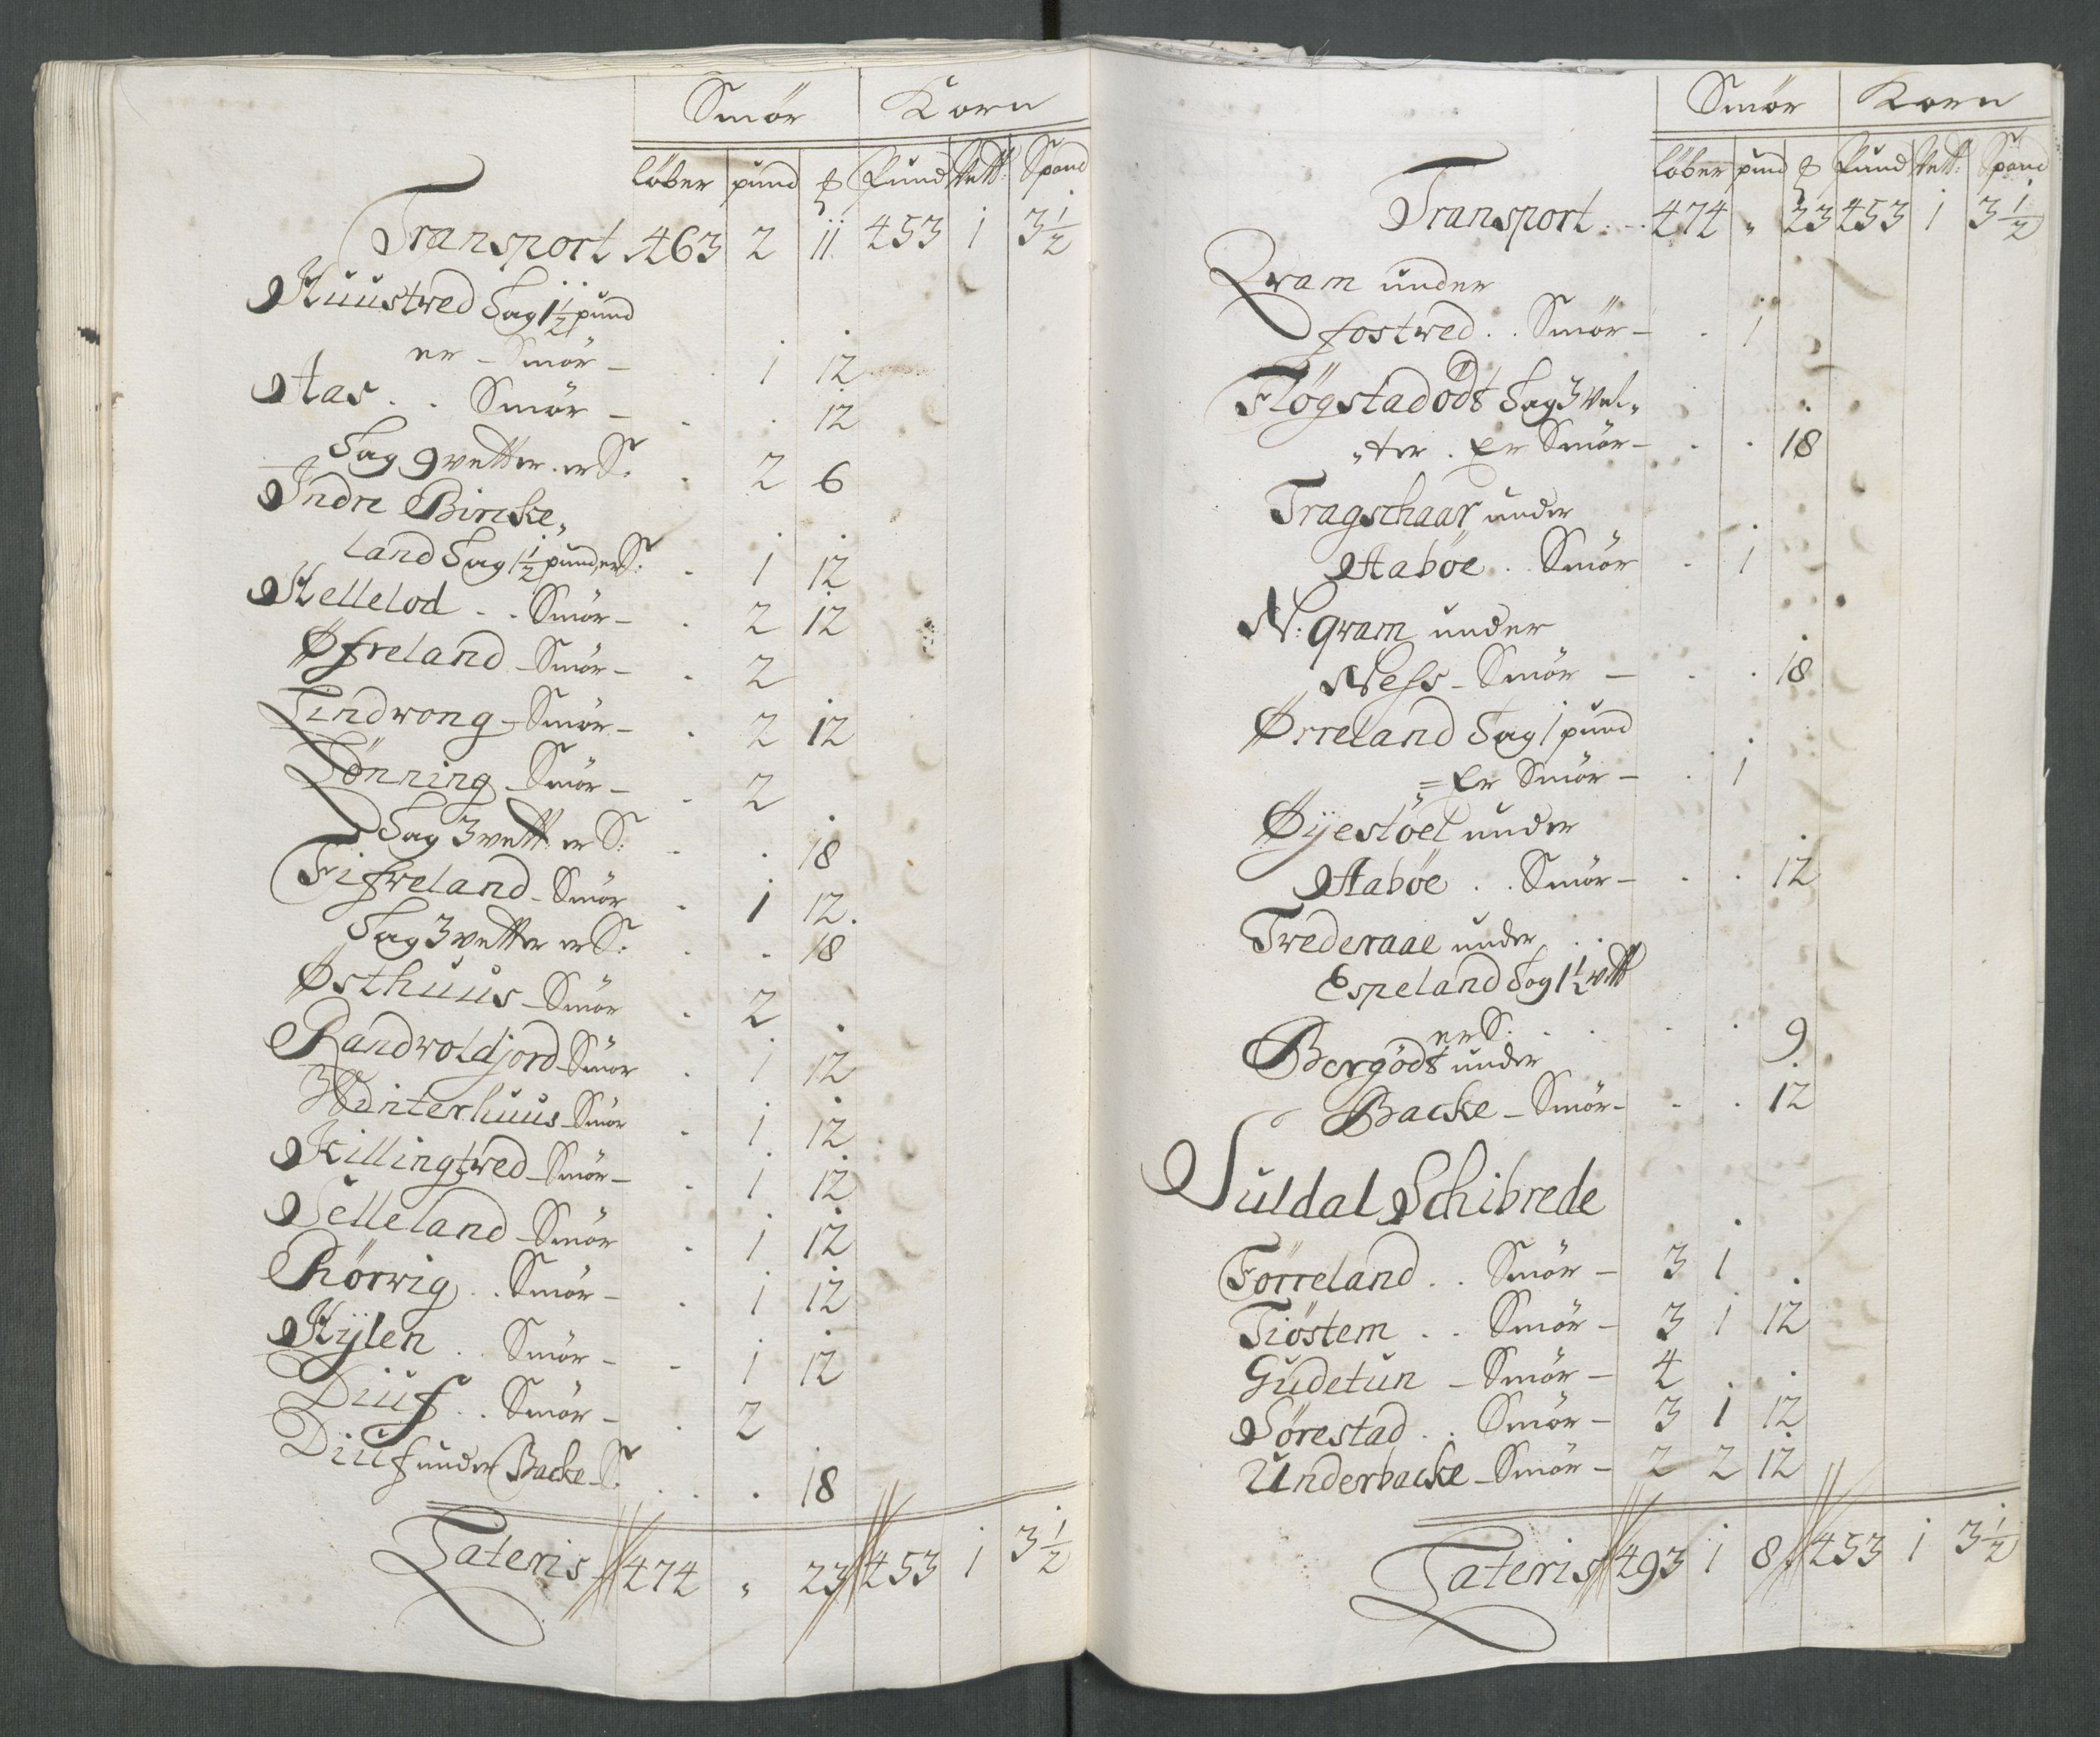 Smör Korn
löber pund ℔ Pund Vett: Spand
Transport 463 2 11 453 1 3 1/2
Huustved Sag 1 1/2 pund
er Smör – . 1 12
Aas . . Smör – . . 12
Sag 9 vetter er S: . 2 6
Indre Bircke„
land Sag 1 1/2 pund er S: . 1 12
Hellelod . . Smör – . 2 12
Øfreland – Smör – . 2
Lindvong – Smör – . 2 12
Lönning – Smör – . 2
Sag 3 vett er S: . . 18
Fifveland – Smör . 1 12
Sag 3 vetter er S: . . 18
Østhuus – Smör . 2
Randvoldjord – Smör . 1 12
Winterhuus – Smör . 1 12
Killingtved – Smör – . 1 12
Selleland – Smör . 1 12
Rörvig . . Smör – . 1 12
Hÿlen . . Smör – . 1 12
Diuf . . Smör – . 2
Diuf under Backe – S: . . 18
Lateris 474 „ 23 453 1 3 1/2
Smör Korn
löber pund ℔ Pund Vett: Spand
Transport . . 474 „ 23 453 1 3 1/2
Qvam under
fostved . . Smör – . 1
Flögstadödt Sag 3 vet„
„ter . Er Smör – . . 18
Tragschaar under
Aaböe . . Smör . 1
N: qvam under
Ness – Smör – . . 18
Ørreland Sag 1 pund
Er Smör – . 1
Øÿestöel under
Aaböe . . Smör – . . 12
Tvederaae under . .
Espeland Sag 1 1/2 vett
er S: . . . . 9
Bergödt under
Backe – Smör – . . 12
Suldal Schibrede
Förreland . . Smör – 3 1
Tiöstem . . Smör – 3 1 12
Gudetun – Smör – 4
Sörestad . . Smör – 3 1 12
Underbacke – Smör – 2 2 12
Lateris 493 1 8 453 1 3 1/2